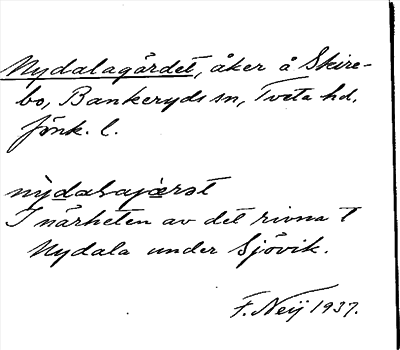 Nydalagärdet, åker å Skire-
bo, Bankeryds sn, Tveta hd,
Jönk. l.
nỳdalajærət
I närheten av det rivna T
Nydala under Sjövik.
F. Neij 1937.